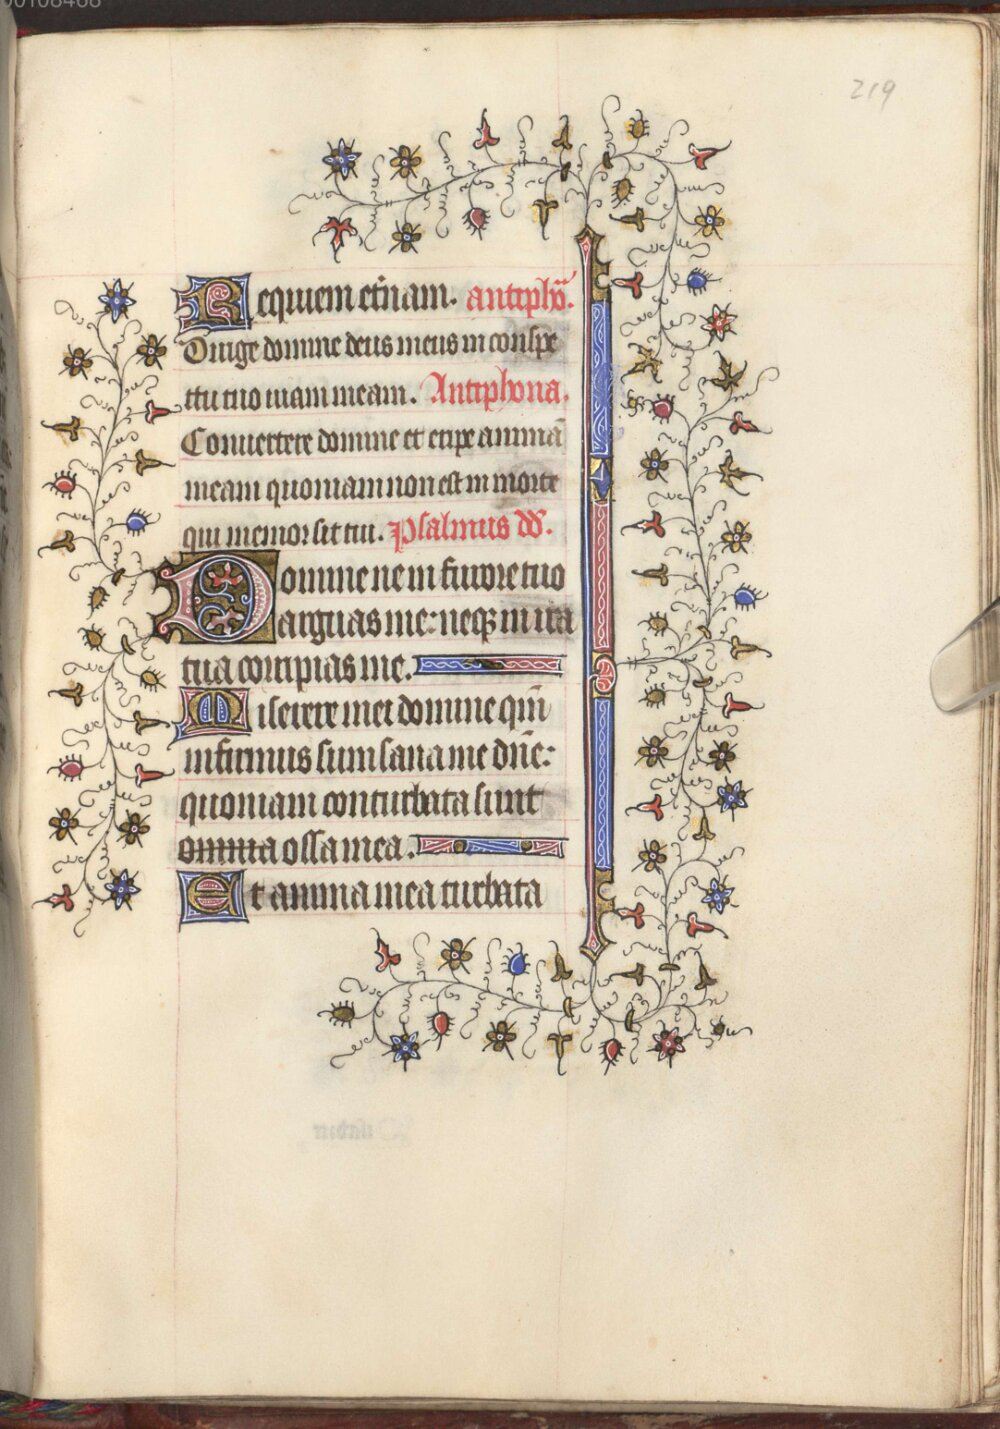 00108468
219
Requiem et̄nam. antipho̅.
Dirige domine deus meus in conspe
ctu tuo uiam meam. Antiphona.
Conuertere domine et eripe animā
meam quoniam non est in morte
qui memor sit tui. Psalmus dd̄.
Domine ne in furore tuo
arguas me: neqꝫ in ira
tua corripias me.
Miserere mei domine qm̄
infirmus sum sana me dn̄e:
quoniam conturbata sunt
omnia ossa mea.
Et anima mea turbata